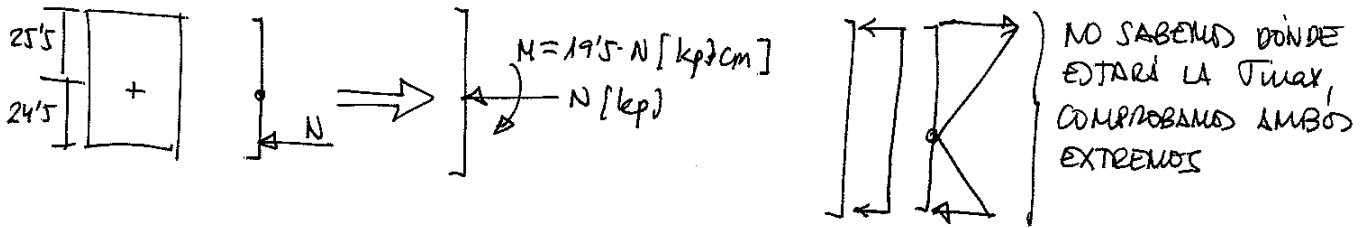 25'5
24'5
+
N
M = 19'5 · N [kp · cm]
N [kp]
NO SABEMOS DÓNDE
ESTARÁ LA σmax,
COMPROBAMOS AMBOS
EXTREMOS